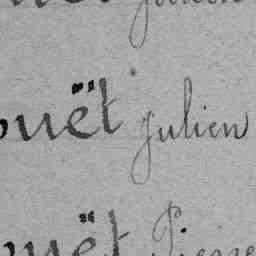 ouët Julien
ouët Pierre